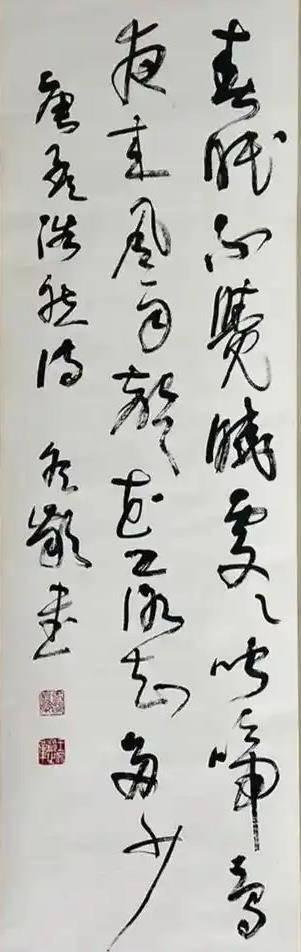 春眠不覺曉處々聞啼鳥
夜来風雨聲花落知多少
唐孟浩然詩 冬齡書